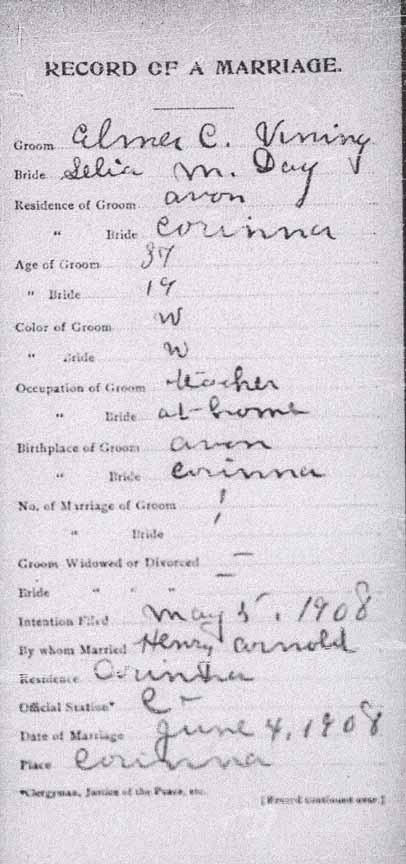 RECORD OF A MARRIAGE.
Groom Elmer C. Vining
Bride Lelia M. Day
Residence of Groom Avon
" Bride Corinna
Age of Groom 37
" Bride 19
Color of Groom W
" Bride W
Occupation of Groom teacher
" Bride at-home
Birthplace of Groom Avon
" Bride Corinna
No. of Marriage of Groom 1
" Bride 1
Groom Widowed or Divorced —
Bride " " " —
Intention Filed May 5, 1908
By whom Married Henry Arnold
Residence Corinna
Official Station* C-
Date of Marriage June 4, 1908
Place Corinna
*Clergyman, Justice of the Peace, etc.
[Record continued over.]